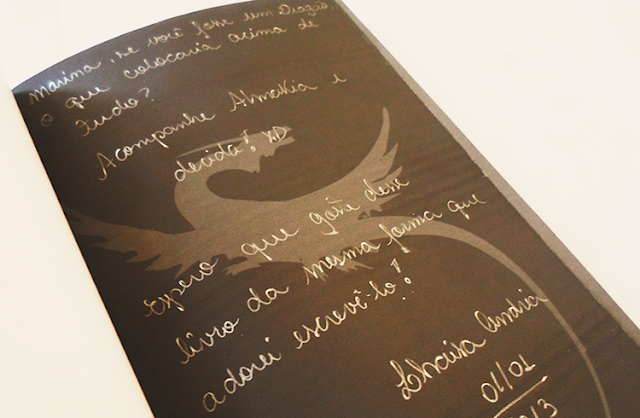 Marina, se você fosse um Dragão
o que colocaria acima de
tudo?
Acompanhe Almakia e
decida! XD
Espero que goste desse
livro da mesma forma que
adorei escrevê-lo!
Lhaisa Andria
01/01